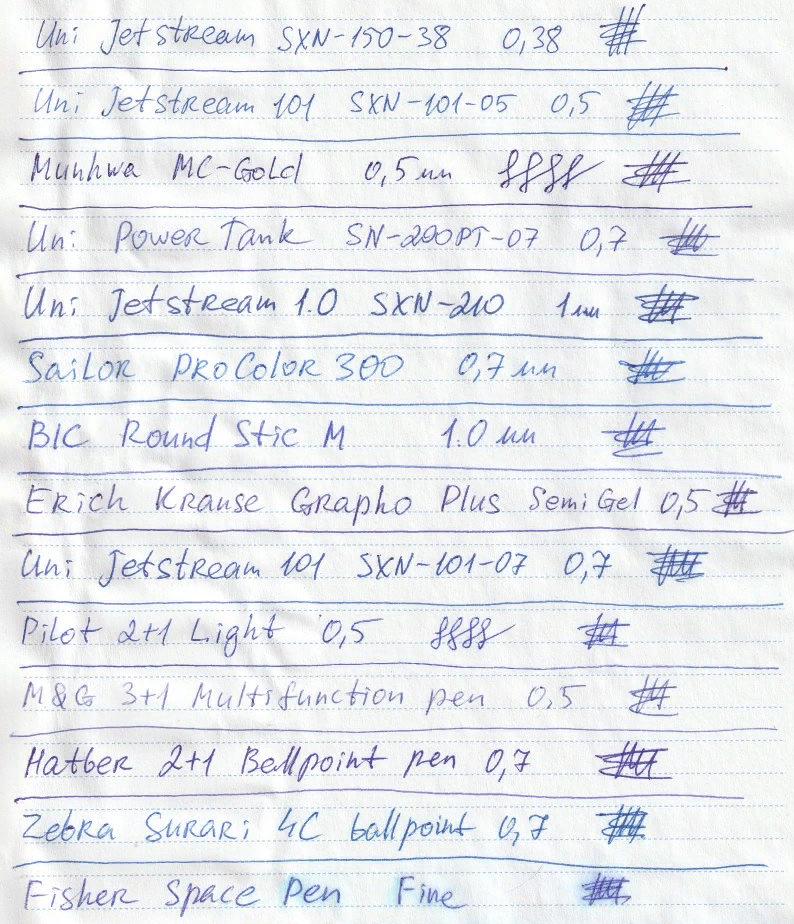 Uni Jetstream SXN-150-38 0,38
Uni Jetstream 101 SXN-101-05 0,5
Munhwa MC-Gold 0,5мм
Uni Power Tank SN-200PT-07 0,7
Uni Jetstream 1.0 SXN-210 1мм
Sailor ProColor 300 0,7мм
BIC Round Stic M 1.0 мм
Erich Krause Grapho Plus Semi Gel 0,5
Uni Jetstream 101 SXN-101-07 0,7
Pilot 2+1 Light 0,5
M&G 3+1 Multifunction pen 0,5
Hatber 2+1 Ballpoint pen 0,7
Zebra Surari 4C ballpoint 0,7
Fisher Space Pen Fine